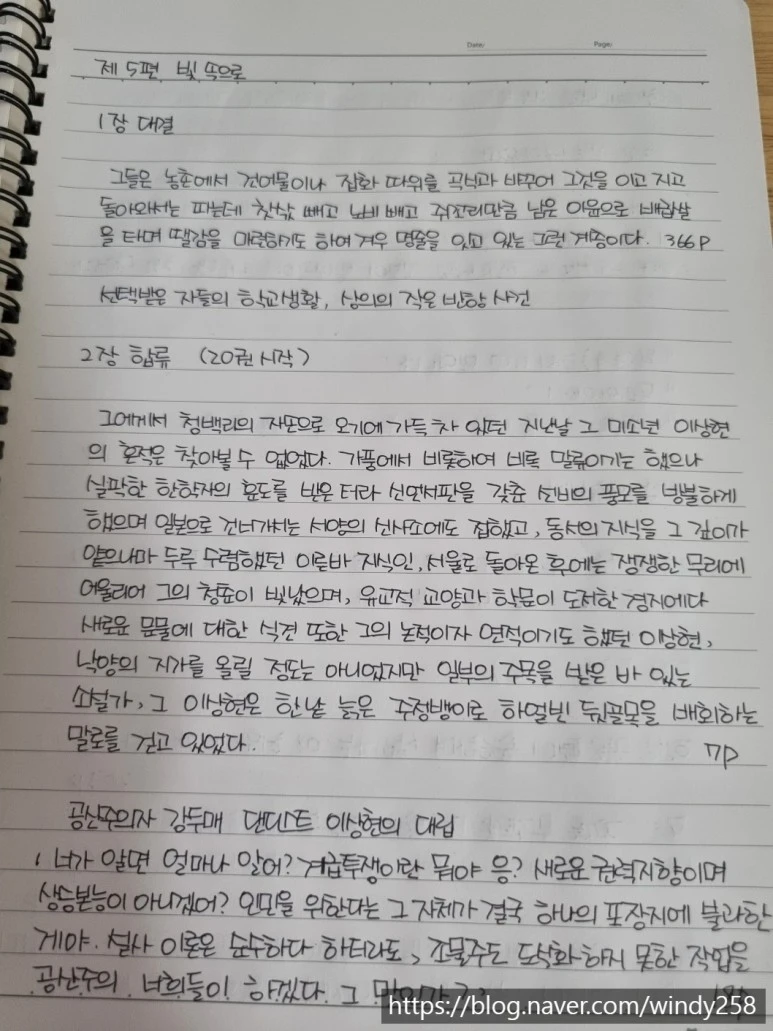 Date:
Page:
제 5편 빛 속으로
1장 대결
그들은 농촌에서 건어물이나 잡화 따위를 곡식과 바꾸어 그것을 이고 지고
돌아와서는 파는데 찻삯 빼고 남에 빼고 쥐꼬리만큼 남은 이윤으로 배급쌀
을 타며 땔감을 마련하기도 하여 겨우 명줄을 잇고 있는 그런 계층이다. 366p
선택받은 자들의 학교생활, 상의의 작은 반항 사건
2장 합류 (20권 시작)
그에게서 청백리의 자손으로 오기에 가득 차 있던 지난날 그 미소년 이상현
의 흔적은 찾아볼 수 없었다. 가풍에서 비롯하여 비록 말류이기는 했으나
실팍한 한학자의 훈도를 받은 터라 신언서판을 갖춘 선비의 풍모를 방불하게
했으며 일본으로 건너가서는 서양의 신사조에도 접했고, 동서의 지식을 그 깊이가
얕으나마 두루 수렴했던 이른바 지식인, 서울로 돌아온 후에는 쟁쟁한 무리에
어울리어 그의 청포이 빛났으며, 유교적 교양과 학문이 도저한 경지에다
새로운 문물에 대한 식견 또한 그의 논적이자 연적이기도 했던 이상현,
낙양의 지가를 올릴 정도는 아니었지만 일부의 주목을 받은 바 있는
소설가, 그 이상현은 한낱 늙은 주정뱅이로 하얼빈 뒷골목을 배회하는
말로를 걷고 있었다. 7p
공산주의자 강두매 댄디스트 이상현의 대립
너가 알면 얼마나 알어? 계급투쟁이란 뭐야 응? 새로운 권력지향이며
상승본능이 아니겠어? 인민을 위한다는 그 자체가 결국 하나의 포장지에 불과한
게야. 설사 이론은 순수하다 하더라도, 조물주도 도식화하지 못한 작업을
공산주의, 너희들이 하겠다. 그
https://blog.naver.com/windy258